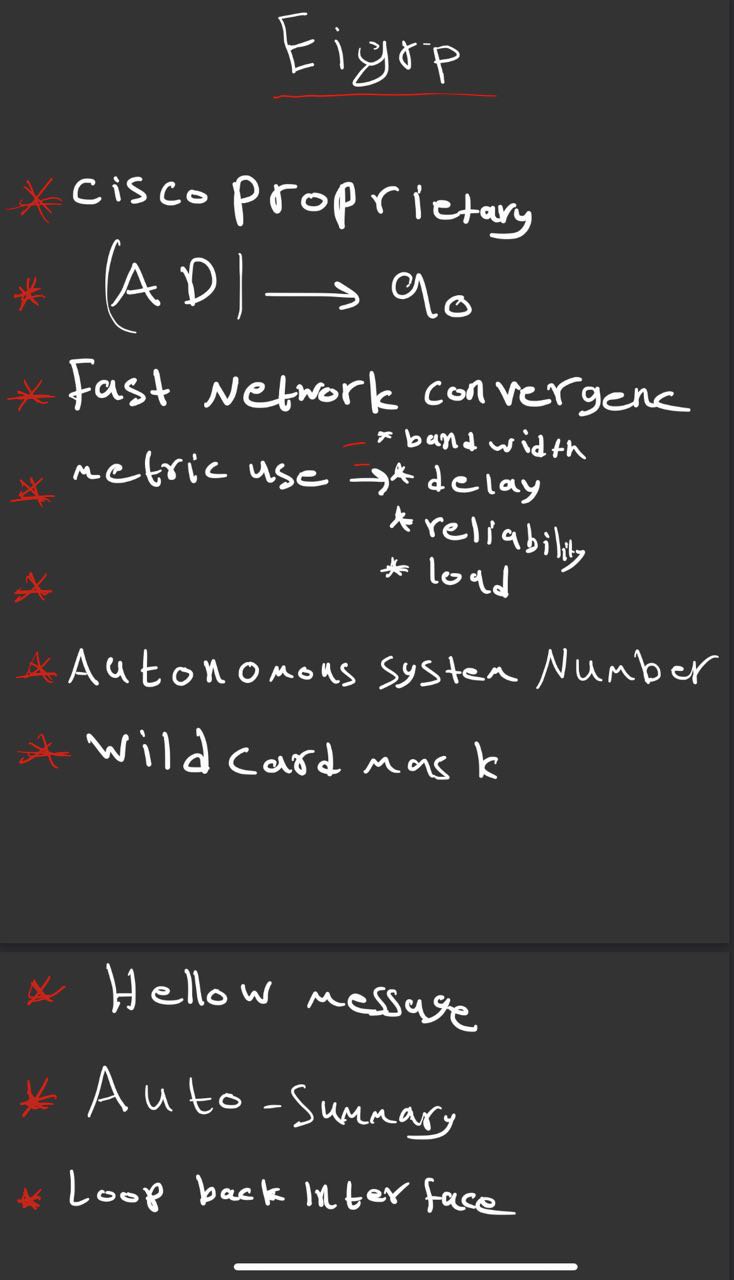 Eigrp
* cisco proprietary
* (AD) → 90
* Fast Network convergenc
* metric use → * band width
* delay
* reliability
* load
*
* Autonomous system Number
* Wild card mask
* Hellow message
* Auto - Summary
* Loop back Interface